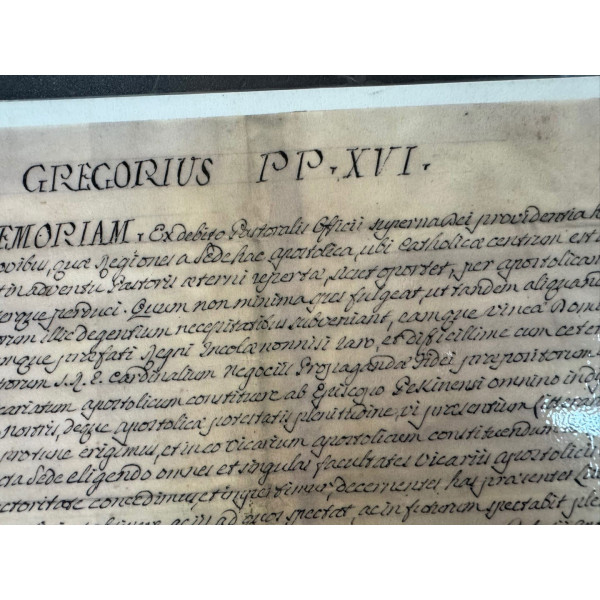 GREGORIUS PP. XVI.
EMORIAM. Ex debito Pastoralis Officii superna Dei providentia
ovibus, quæ Regiones a Sede hac apostolica, ubi Catholicæ centrum est
in adventu Pastoris æterni repertæ, sicut oportet, per apostolicam
perduci. Quum non minima spes fulgeat, ut tandem aliquan
orum illic degentium necessitatibus subveniant, eamque vinea Domi
mque præfati Regni Incolæ nonnisi raro, et difficillime cum ceter
trorum S. R. E. Cardinalium Negociis Propagandæ Fidei præpositorum
cariatum apostolicum constituere ab Episcopo Pekinensi omnino ind
nostris, deque apostolicæ potestatis plenitudine, vi præsentium Literar
erigimus, et in eo Vicarium apostolicum constituendum
cta Sede eligendo omnes et singulas facultates Vicariis apostolici
ctoritate concedimus, et impertimur, decernentes, has præsentes
ac in ad quos spectat, ac in futurum spectabit ple